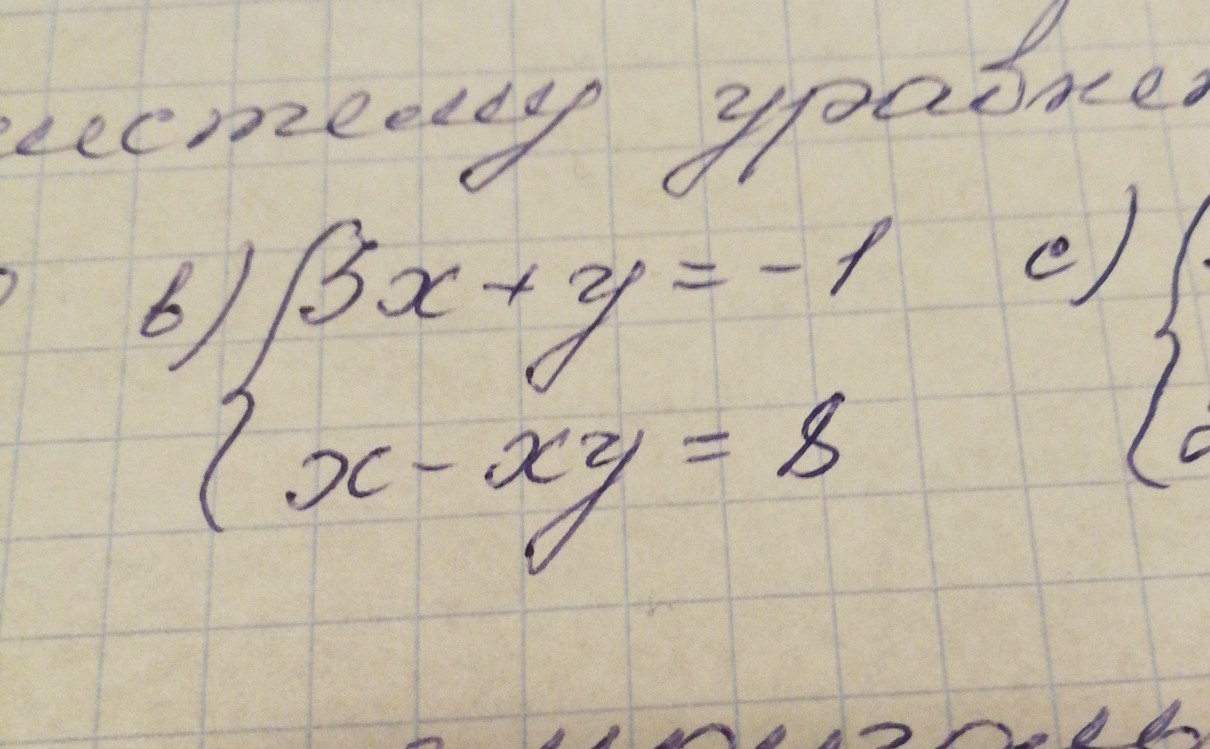 систему уравнен
в) { 3x + y = -1 c) {
x - xy = 8